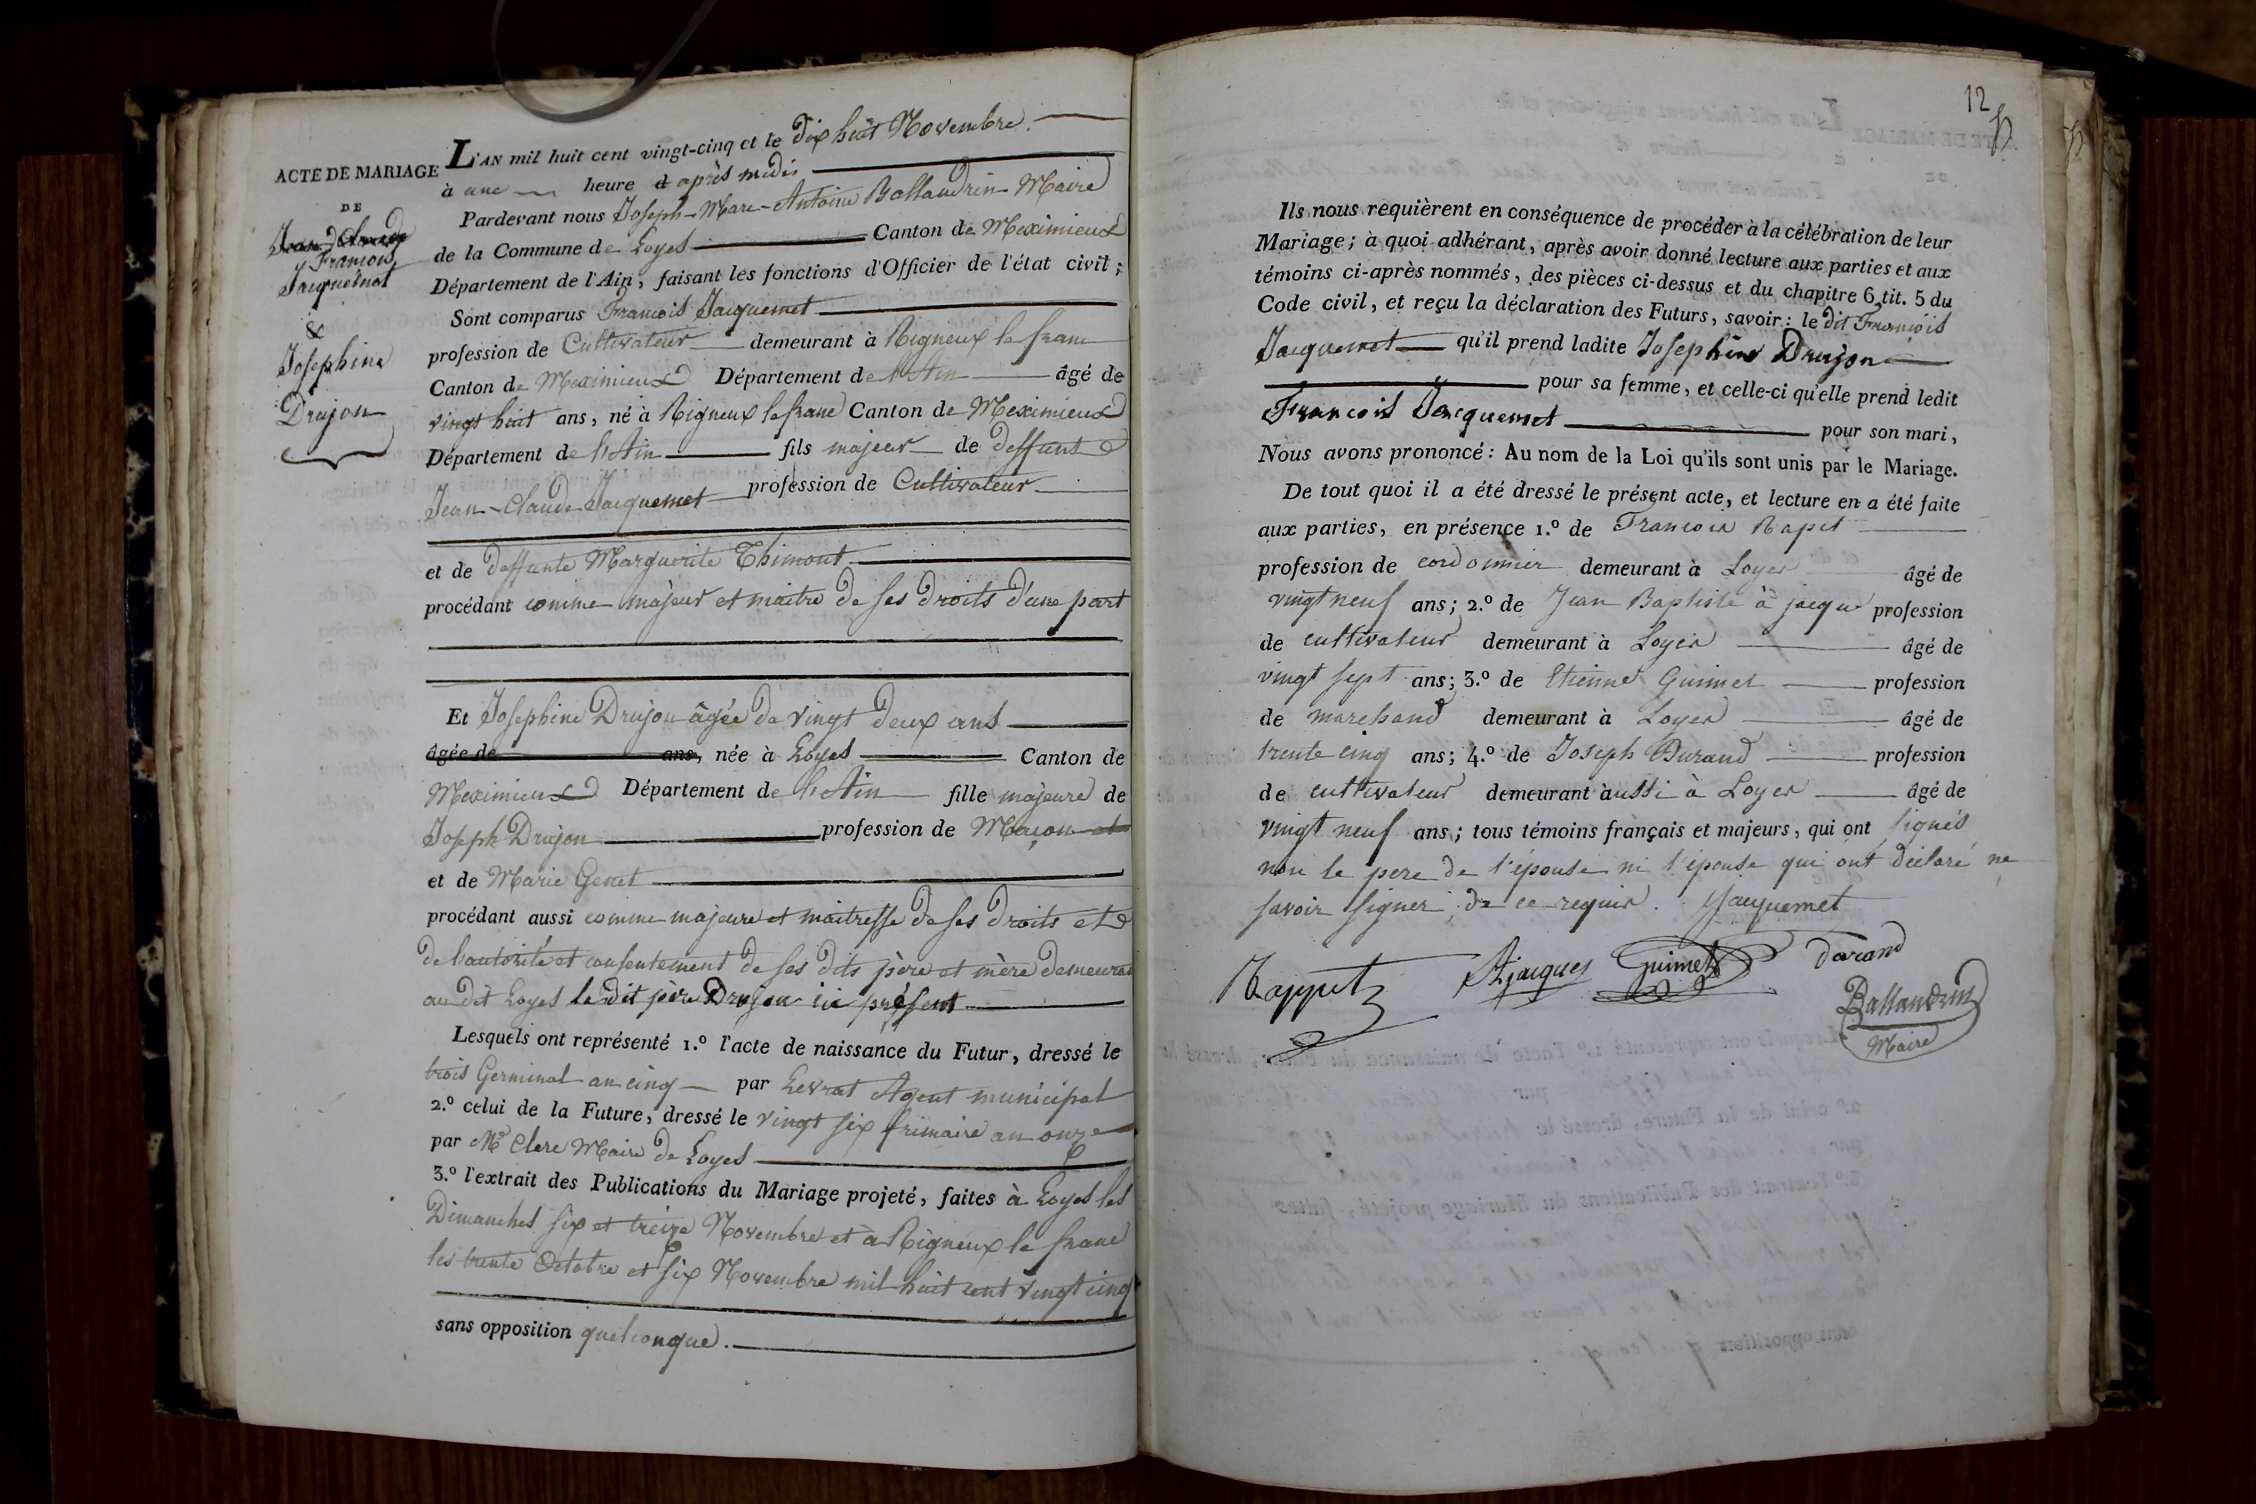 ACTE DE MARIAGE
DE
Jean Claude
François
Jacquemet
&
Josephine
Drujon
L'AN mil huit cent vingt-cinq et le dix huit Novembre.
à une heure d après midi
Pardevant nous Joseph-Marc-Antoine Ballandrin Maire
de la Commune de Loyes Canton de Meximieux
Département de l'Ain, faisant les fonctions d'Officier de l'état civil;
Sont comparus François Jacquemet
profession de Cultivateur demeurant à Rigneux le franc
Canton de Meximieux Département de l'Ain âgé de
vingt huit ans, né à Rigneux le franc Canton de Meximieux
Département de l'Ain fils majeur de deffunt
Jean-Claude Jacquemet profession de Cultivateur
et de deffunte Marguerite Thimont
procédant comme majeur et maitre de ses droits d'une part
Et Josephine Drujon âgée de vingt deux ans
âgée de ans, née à Loyes Canton de
Meximieux Département de l'Ain fille majeure de
Joseph Drujon profession de Maçon et
et de Marie Genet
procédant aussi comme majeure et maitresse de ses droits et
de l'autorité et consentement de ses dits père et mère demeurant
au dit Loyes le dit père Drujon ici présent
Lesquels ont représenté 1.º l'acte de naissance du Futur, dressé le
trois Germinal an cinq par Levrat Agent municipal
2.º celui de la Future, dressé le vingt six frimaire an onze
par Mr Clerc Maire de Loyes
3.º l'extrait des Publications du Mariage projeté, faites à Loyes les
Dimanches six et treize Novembre et à Rigneux le franc
les trente Octobre et six Novembre mil huit cent vingt cinq
sans opposition quelconque.
12
Ils nous requièrent en conséquence de procéder à la célébration de leur
Mariage; à quoi adhérant, après avoir donné lecture aux parties et aux
témoins ci-après nommés, des pièces ci-dessus et du chapitre 6, tit. 5 du
Code civil, et reçu la déclaration des Futurs, savoir: le dit François
Jacquemet qu'il prend ladite Josephine Drujon
pour sa femme, et celle-ci qu'elle prend ledit
François Jacquemet pour son mari,
Nous avons prononcé: Au nom de la Loi qu'ils sont unis par le Mariage.
De tout quoi il a été dressé le présent acte, et lecture en a été faite
aux parties, en présence 1.º de Francois Rapet
profession de cordonnier demeurant à Loyes âgé de
vingt neuf ans; 2.º de Jean Baptiste à jacque profession
de cultivateur demeurant à Loyes âgé de
vingt sept ans; 3.º de Etienne Guimet profession
de marchand demeurant à Loyes âgé de
trente cinq ans; 4.º de Joseph Durand profession
de cultivateur demeurant aussi à Loyes âgé de
vingt neuf ans; tous témoins français et majeurs, qui ont signés
non le pere de l'épouse ni l'épouse qui ont déclaré ne
savoir signer de ce requis. Jacquemet
Rappet Ajacques Guimet durand
Ballandrin
Maire